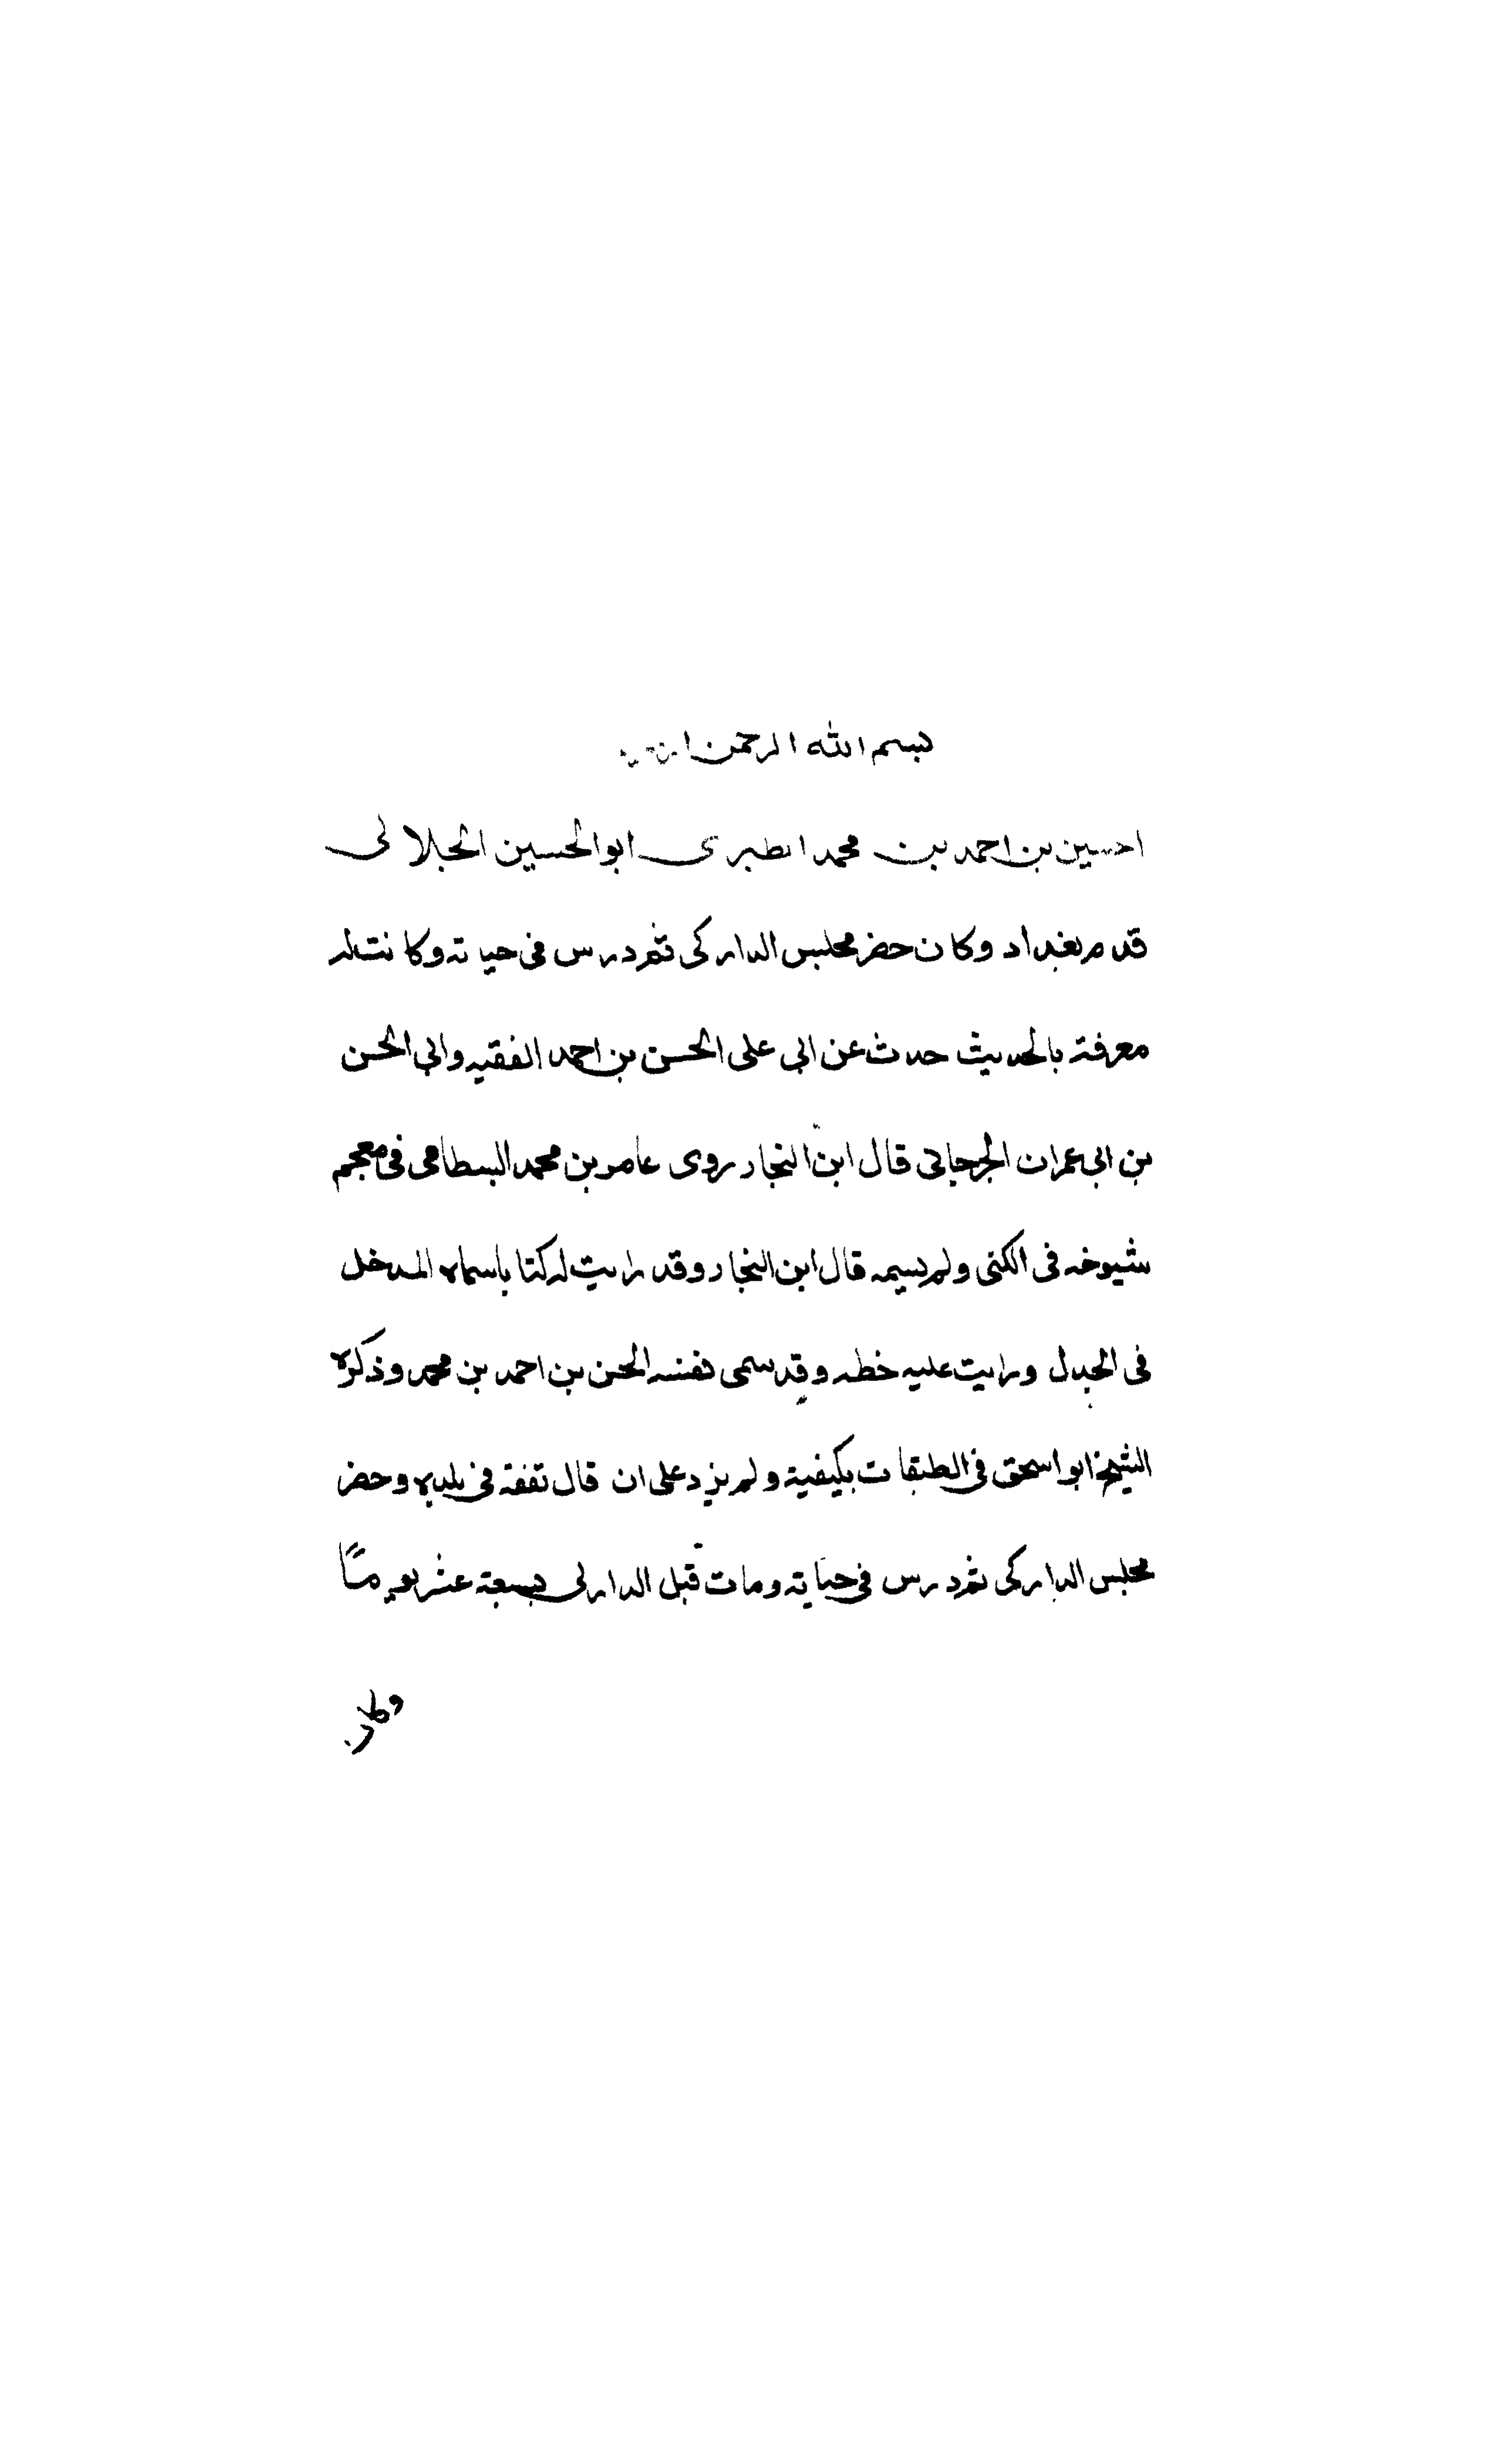 بسم الله الرحمن
احسين بن احمد بن محمد الطبرى ابوالحسين الجلالى
قدم بغداد وكان حضر مجلس الداركى ثم درس فى حياته وكانت له
معرفة بالحديث حدث عن ابى على الحسن بن احمد الفقيه وابى الحسن
بن ابى عمران الجرجانى قال ابن النجار روى عامر بن محمد البسطامى فى معجم
شيوخه فى الكنى ولم يسمه قال ابن النجار وقد رايت له كتابا سماه المدخل
فى الجدل ورايت عليه خطه وقد سمى نفسه الحسن بن احمد بن محمد وذكره
الشيخ ابو اسحق فى الطبقات بكيفية ولم يزد على ان قال تفقه فى بلده وحضر
مجلس الداركى ثم درس فى حياته ومات قبل الداركى بسبعة عشر يوما
وكان